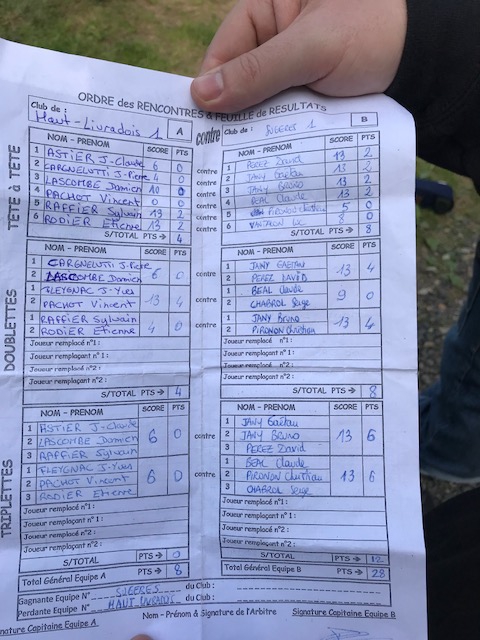 ORDRE des RENCONTRES & FEUILLE de RESULTATS
Club de : Haut-Livradois 1 A contre Club de : SUGERES 1 B
TÊTE à TÊTE
NOM - PRENOM SCORE PTS NOM - PRENOM SCORE PTS
1 ASTIER J-Claude 6 0 contre 1 PEREZ David 13 2
2 CARGNELUTTI J-Pierre 4 0 contre 2 JANY Gaëtan 13 2
3 LASCOMBE Damien 10 0 contre 3 JANY BRUNO 13 2
4 PACHOT Vincent 0 0 contre 4 BEAL Claude 13 2
5 RAFFIER Sylvain 13 2 contre 5 PIRONON Christian 5 0
6 RODIER Etienne 13 2 contre 6 8 0
S/TOTAL PTS → 4 S/TOTAL PTS → 8
DOUBLETTES
NOM - PRENOM SCORE PTS NOM - PRENOM SCORE PTS
1 CARGNELUTTI J-Pierre 6 0 contre 1 JANY GAETAN 13 4
2 LASCOMBE Damien 2 PEREZ DAVID
1 FLEYGNAC J-Yves 13 4 contre 1 BEAL Claude 9 0
2 PACHOT Vincent 2 CHABROL Serge
1 RAFFIER Sylvain 4 0 contre 1 JANY Bruno 13 4
2 RODIER Etienne 2 PIRONON Christian
Joueur remplacé n°1 : Joueur remplacé n°1 :
Joueur remplaçant n°1 : Joueur remplaçant n°1 :
Joueur remplacé n°2 : Joueur remplacé n°2 :
Joueur remplaçant n°2 : Joueur remplaçant n°2 :
S/TOTAL PTS → 4 S/TOTAL PTS → 8
TRIPLETTES
NOM - PRENOM SCORE PTS NOM - PRENOM SCORE PTS
1 ASTIER J-Claude 6 0 contre 1 JANY Gaëtan 13 6
2 LASCOMBE Damien 2 JANY BRUNO
3 RAFFIER Sylvain 3 PEREZ David
1 FLEYGNAC J-Yves 6 0 contre 1 BEAL Claude 13 6
2 PACHOT Vincent 2 PIRONON Christian
3 RODIER Etienne 3 CHABROL Serge
Joueur remplacé n°1 : Joueur remplacé n°1 :
Joueur remplaçant n°1 : Joueur remplaçant n°1 :
Joueur remplacé n°2 : Joueur remplacé n°2 :
Joueur remplaçant n°2 : Joueur remplaçant n°2 :
S/TOTAL PTS → 0 S/TOTAL PTS → 12
Total Général Equipe A PTS → 8 Total Général Equipe B PTS → 28
Gagnante Equipe N° SUGERES du Club :
Perdante Equipe N° HAUT LIVRADOIS du Club :
Signature Capitaine Equipe A Nom - Prénom & Signature de l'Arbitre Signature Capitaine Equipe B